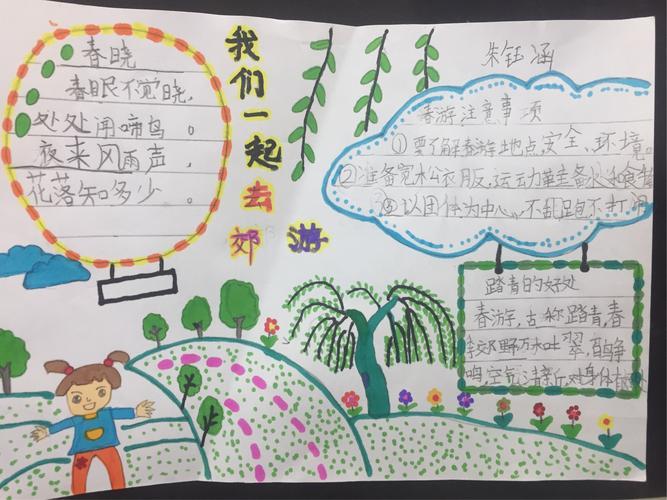 春晓
春眠不觉晓,
处处闻啼鸟。
夜来风雨声,
花落知多少。
我们一起去
郊游
朱钰涵
春游注意事项
①要了解春游地点,安全、环境。
②准备宽松衣服,运动鞋备水和食物
③以团体为中心,不乱跑不打闹
踏青的好处
春游,古称踏青,春
季郊野万木吐翠,百争
鸣,空气清新,对身体